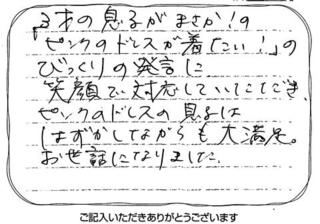 「3才の息子がまさか！の
ピンクのドレスが着たい！」の
びっくりの発言に
笑顔で対応していてただき、
ピンクのドレスの息子は
はずかしながらも大満足。
お世話になりました。
ご記入いただきありがとうございます